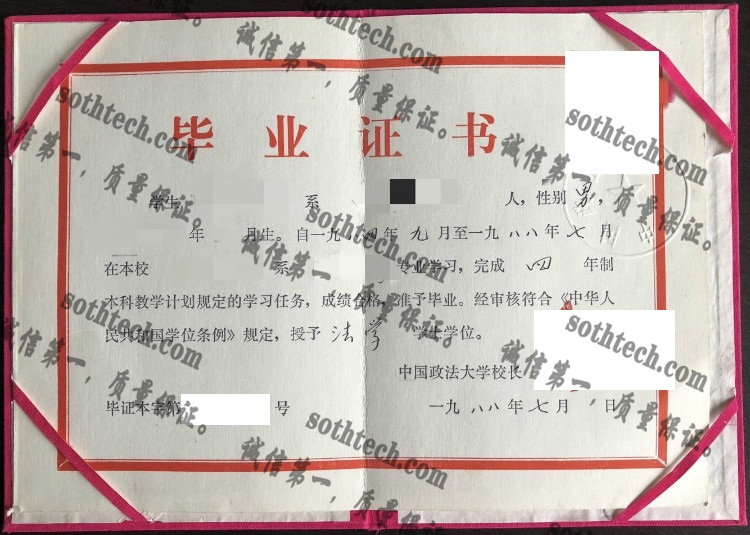 毕业证书
学生 系 人，性别男，
年 月生。自一九八四年九月至一九八八年七月
在本校 系 专业学习，完成四年制
本科教学计划规定的学习任务，成绩合格，准予毕业。经审核符合《中华人
民共和国学位条例》规定，授予法学学士学位。
中国政法大学校长
毕证本字第 号
一九八八年七月 日
sothtech.com
诚信第一，质量保证。
sothtech.com
诚信第一，质量保证。
sothtech.com
诚信第一，质量保证。
sothtech.com
诚信第一，质量保证。
sothtech.com
诚信第一，质量保证。
sothtech.com
诚信第一，质量保证。
sothtech.com
诚信第一，质量保证。
sothtech.com
sothtech.com